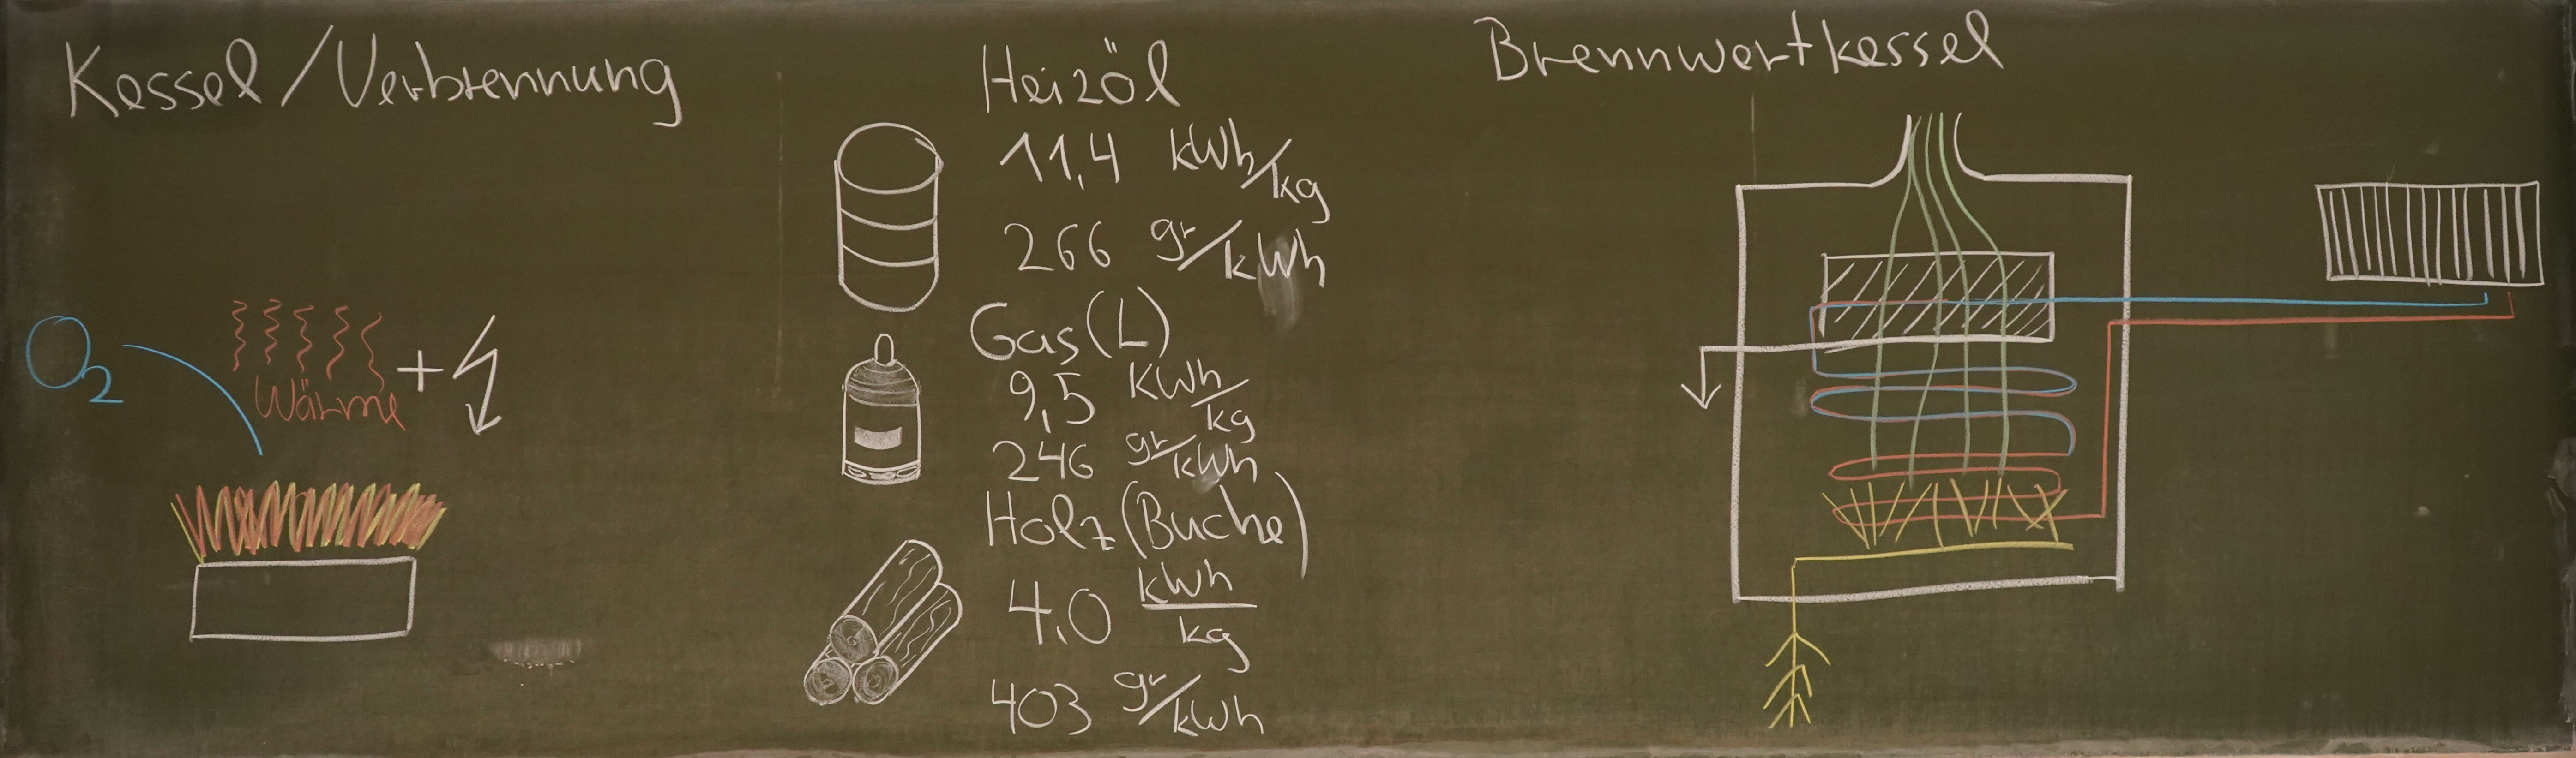 Kessel/Verbrennung
O2
Wärme +
Heizöl
11,4 kWh/kg
266 gr/kWh
Gas(L)
9,5 kWh/kg
246 gr/kWh
Holz(Buche)
4,0 kWh/kg
403 gr/kWh
Brennwertkessel